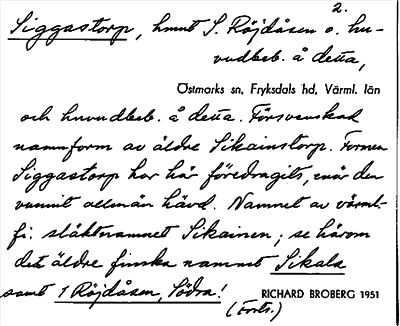 2.
Siggastorp, hmnt S. Röjdåsen o. hu-
vudbeb. å detta,
Östmarks sn, Fryksdals hd, Värml. län
och huvudbeb. å detta. Försvenskad
namnform av äldre Sikainstorp. Formen
Siggastorp har här föredragits, enär den
vunnit allmän hävd. Namnet av värml.-
fi. släktnamnet Sikainen; se härom
det äldre finska namnet Sikala
samt 1 Röjdåsen, Södra!
RICHARD BROBERG 1951
(Forts.)